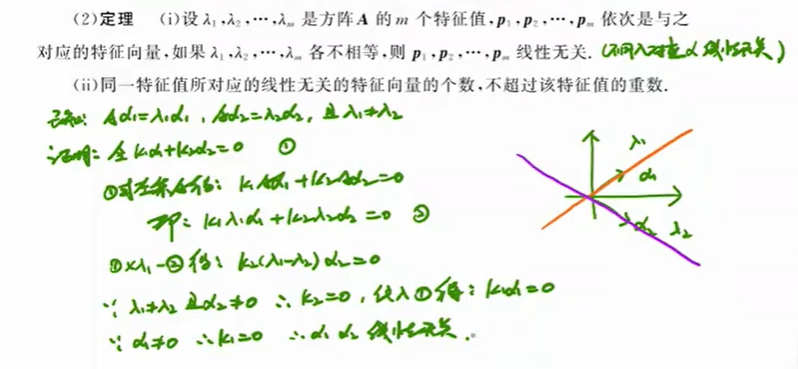 (2)定理 (i)设 λ₁,λ₂,⋯,λₘ 是方阵 A 的 m 个特征值,p₁,p₂,⋯,pₘ 依次是与之
对应的特征向量,如果 λ₁,λ₂,⋯,λₘ 各不相等,则 p₁,p₂,⋯,pₘ 线性无关. (不同λ对应α线性无关)
(ii)同一特征值所对应的线性无关的特征向量的个数,不超过该特征值的重数.
已知: Aα₁=λ₁α₁, Aα₂=λ₂α₂, 且λ₁≠λ₂
证明: 令 k₁α₁+k₂α₂=0 ①
①式左乘A得: k₁Aα₁+k₂Aα₂=0
即: k₁λ₁α₁+k₂λ₂α₂=0 ②
①×λ₁-②得: k₂(λ₁-λ₂)α₂=0
∵ λ₁≠λ₂ 且α₂≠0 ∴ k₂=0, 代入①得: k₁α₁=0
∵ α₁≠0 ∴k₁=0 ∴α₁ α₂ 线性无关.
λ₁
α₁
α₂ λ₂